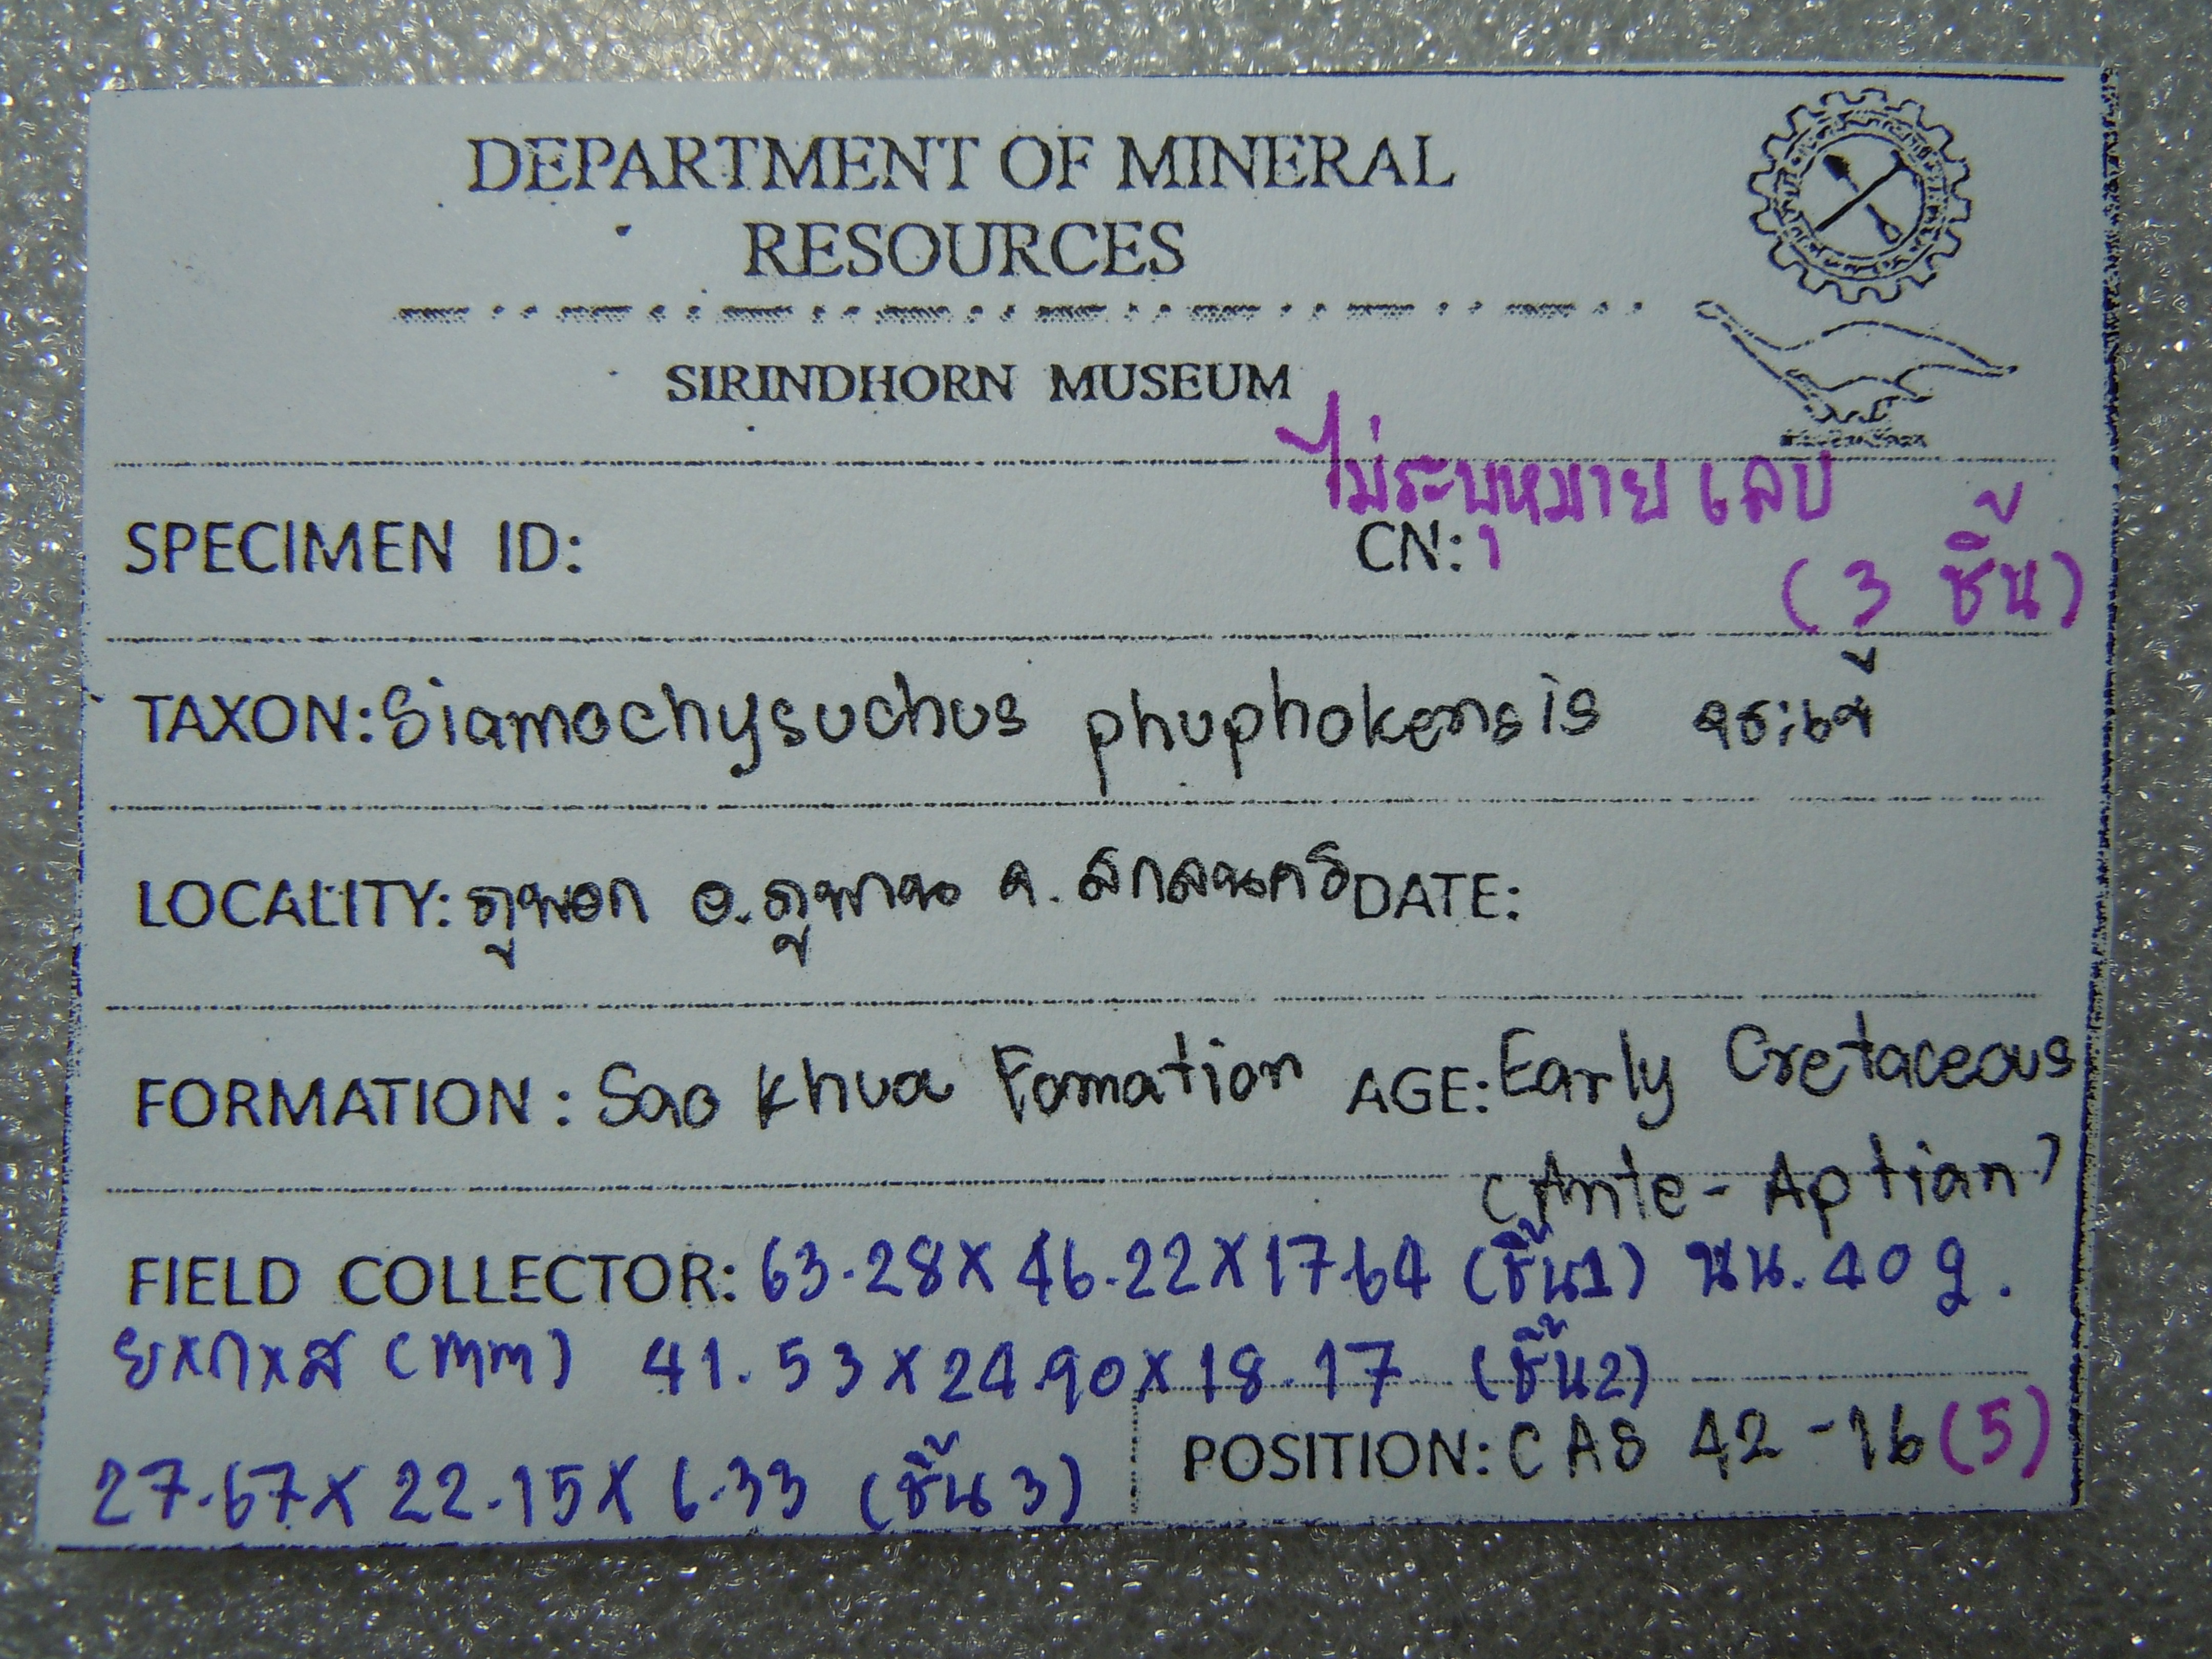 DEPARTMENT OF MINERAL
RESOURCES
SIRINDHORN MUSEUM
ไม่ระบุหมายเลข
SPECIMEN ID: CN:
(3 ชิ้น)
TAXON: Siamochysuchus phuphokensis จระเข้
LOCALITY: ภูพอก อ.ภูพาน จ.สกลนคร DATE:
FORMATION: Sao Khua Fomation AGE: Early Cretaceous
(Ante-Aptian)
FIELD COLLECTOR: 63.28X46.22X17.64 (ชิ้น1) นน. 40 g.
ยxกxส (mm) 41.53X24.90X18.17 (ชิ้น2)
27.67X22.15X6.33 (ชิ้น3) POSITION: CAS 42-16(5)